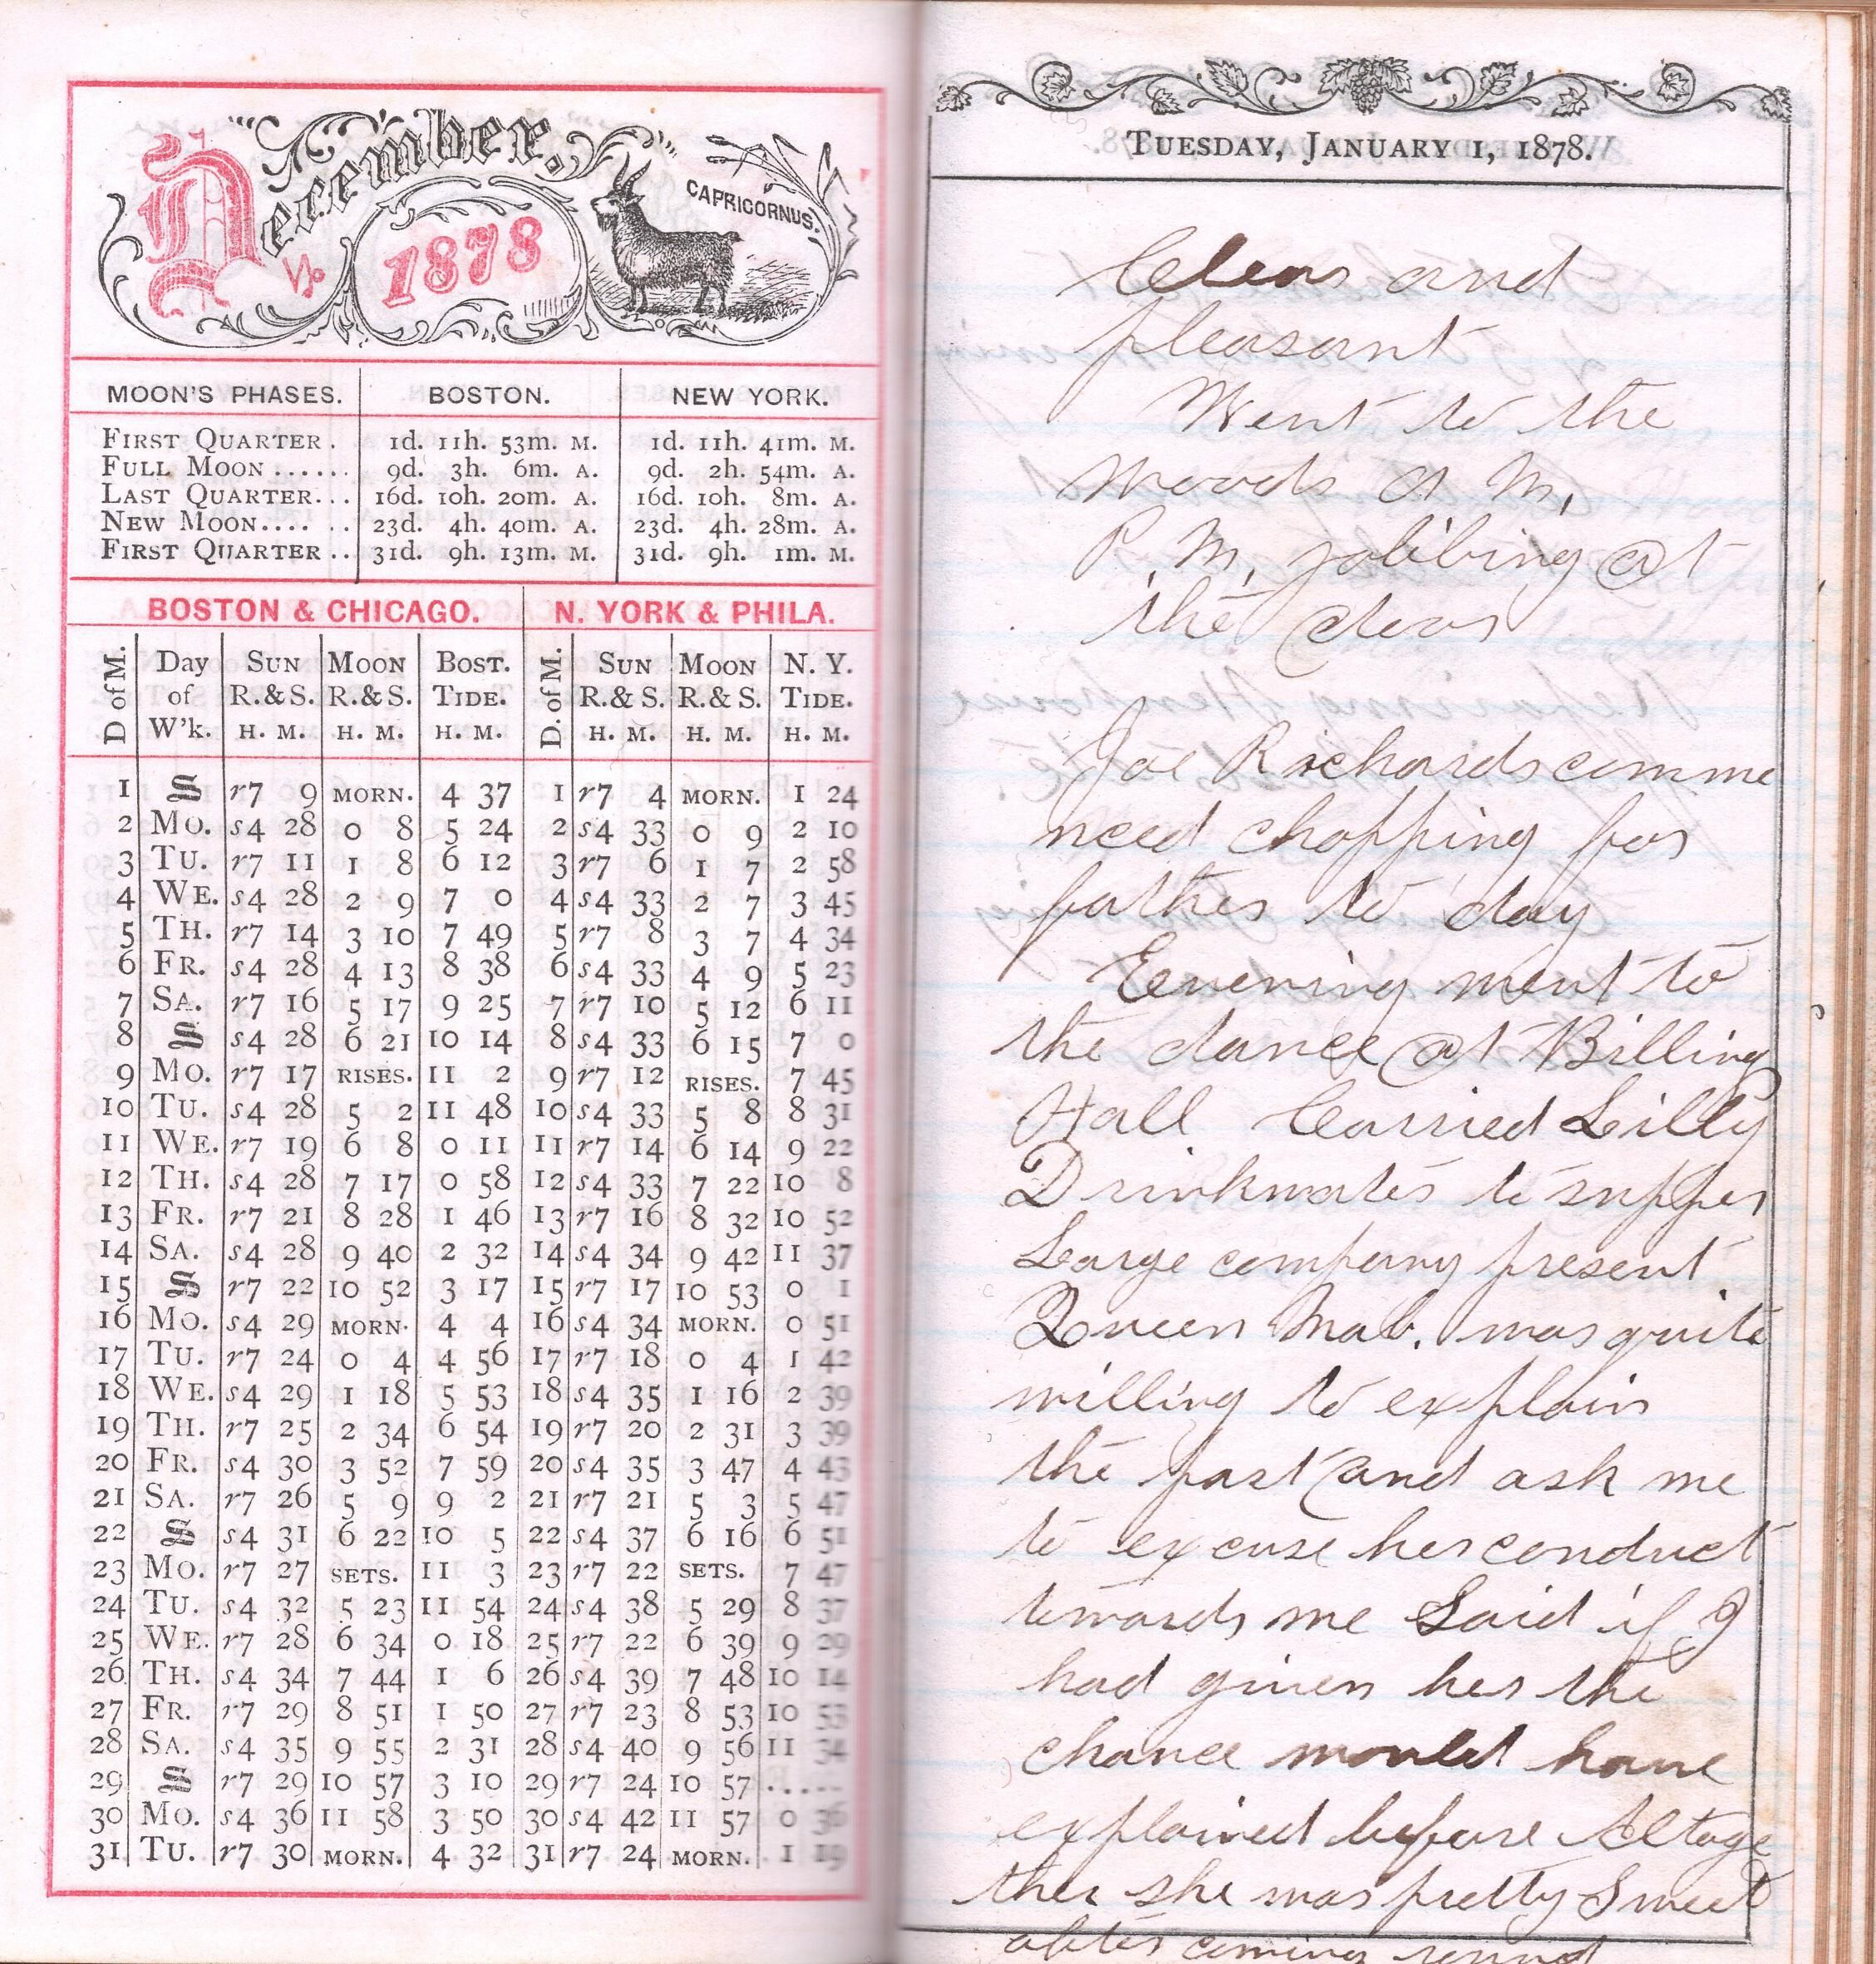 December.
1878
CAPRICORNUS.
MOON'S PHASES. BOSTON. NEW YORK.
FIRST QUARTER . 1d. 11h. 53m. M. 1d. 11h. 41m. M.
FULL MOON ...... 9d. 3h. 6m. A. 9d. 2h. 54m. A.
LAST QUARTER... 16d. 10h. 20m. A. 16d. 10h. 8m. A.
NEW MOON.... .. 23d. 4h. 40m. A. 23d. 4h. 28m. A.
FIRST QUARTER .. 31d. 9h. 13m. M. 31d. 9h. 1m. M.
BOSTON & CHICAGO. N. YORK & PHILA.
D of M. Day of W'k. SUN R.&S. H. M. MOON R.&S. H. M. BOST. TIDE. H. M. D. of M. SUN R.&S. H. M. MOON R.&S. H. M. N. Y. TIDE. H. M.
1 S r7 9 MORN. 4 37 1 r7 4 MORN. 1 24
2 MO. s4 28 0 8 5 24 2 s4 33 0 9 2 10
3 TU. r7 11 1 8 6 12 3 r7 6 1 7 2 58
4 WE. s4 28 2 9 7 0 4 s4 33 2 7 3 45
5 TH. r7 14 3 10 7 49 5 r7 8 3 7 4 34
6 FR. s4 28 4 13 8 38 6 s4 33 4 9 5 23
7 SA. r7 16 5 17 9 25 7 r7 10 5 12 6 11
8 S s4 28 6 21 10 14 8 s4 33 6 15 7 0
9 MO. r7 17 RISES. 11 2 9 r7 12 RISES. 7 45
10 TU. s4 28 5 2 11 48 10 s4 33 5 8 8 31
11 WE. r7 19 6 8 0 11 11 r7 14 6 14 9 22
12 TH. s4 28 7 17 0 58 12 s4 33 7 22 10 8
13 FR. r7 21 8 28 1 46 13 r7 16 8 32 10 52
14 SA. s4 28 9 40 2 32 14 s4 34 9 42 11 37
15 S r7 22 10 52 3 17 15 r7 17 10 53 0 1
16 MO. s4 29 MORN. 4 4 16 s4 34 MORN. 0 51
17 TU. r7 24 0 4 4 56 17 r7 18 0 4 1 42
18 WE. s4 29 1 18 5 53 18 s4 35 1 16 2 39
19 TH. r7 25 2 34 6 54 19 r7 20 2 31 3 39
20 FR. s4 30 3 52 7 59 20 s4 35 3 47 4 43
21 SA. r7 26 5 9 9 2 21 r7 21 5 3 5 47
22 S s4 31 6 22 10 5 22 s4 37 6 16 6 51
23 MO. r7 27 SETS. 11 3 23 r7 22 SETS. 7 47
24 TU. s4 32 5 23 11 54 24 s4 38 5 29 8 37
25 WE. r7 28 6 34 0 18 25 r7 22 6 39 9 29
26 TH. s4 34 7 44 1 6 26 s4 39 7 48 10 14
27 FR. r7 29 8 51 1 50 27 r7 23 8 53 10 53
28 SA. s4 35 9 55 2 31 28 s4 40 9 56 11 34
29 S r7 29 10 57 3 10 29 r7 24 10 57 .....
30 MO. s4 36 11 58 3 50 30 s4 42 11 57 0 36
31 TU. r7 30 MORN. 4 32 31 r7 24 MORN. 1 19
TUESDAY, JANUARY 1, 1878.
Clear and
pleasant
Went to the
woods A M,
P. M, jobbing at
the door
Joe Richards comme
need chopping for
father to day
Evening went to
the dance at Billing
Hall Carried Lilly
Drinkwater to supper
Large company present
Queen Mab. was quite
willing to explain
the past and ask me
to excuse her conduct
towards me Said if I
had given her the
chance would have
explained before Altoge
ther she was pretty Sweet
after coming round